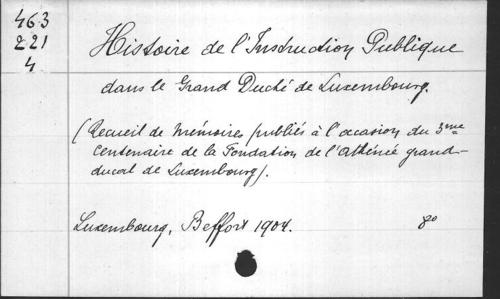 463
221
4
Histoire de l'Instruction Publique
dans le Grand Duché de Luxembourg.
(Recueil de mémoires publiés à l'occasion du 3me
Centenaire de la Fondation de l'Athénée grand-
ducal de Luxembourg).
Luxembourg, Beffort 1904. 8o